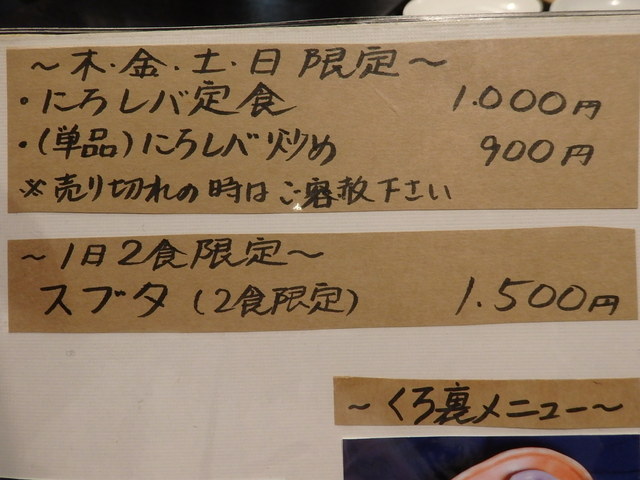 ～木・金・土・日限定～
・にろレバ定食 1.000円
・(単品)にろレバ炒め 900円
※売り切れの時はご容赦下さい
～1日2食限定～
スブタ(2食限定) 1.500円
～くろ裏メニュー～